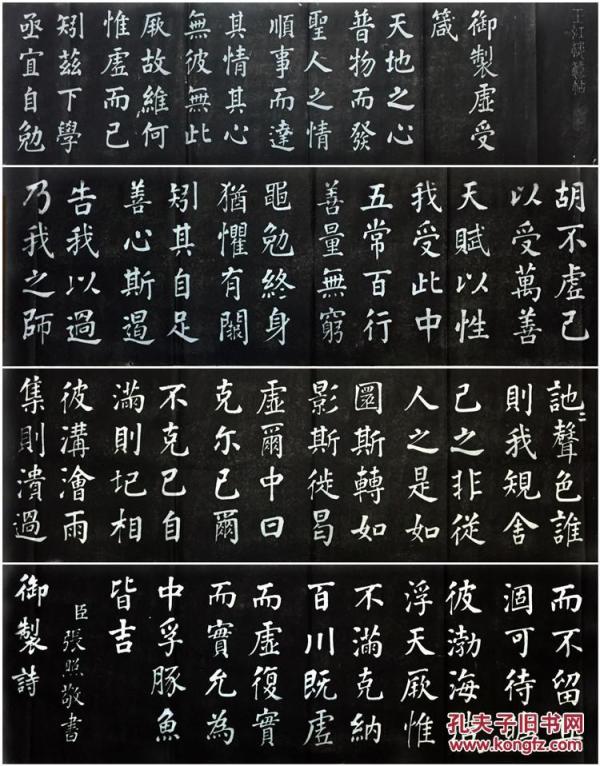 御製虛受
箴
天地之心
普物而發
聖人之情
順事而達
其情其心
無彼無此
厥故維何
惟虛而已
矧茲下學
亟宜自勉
胡不虛己
以受萬善
天賦以性
我受此中
五常百行
善量無窮
黽勉終身
猶懼有闕
矧其自足
善心斯遏
告我以過
乃我之師
訑〻聲色誰
則我規舍
己之非從
人之是如
圜斯轉如
影斯徙曷
虛爾中曰
克尔己爾
不克己自
滿則圮相
彼溝澮雨
集則潰過
而不留
涸可待
彼渤海
浮天厥惟
不滿克納
百川既虛
而虛復實
而實允為
中孚豚魚
皆吉
臣張照敬書
御製詩
孔夫子旧书网
www.kongfz.com